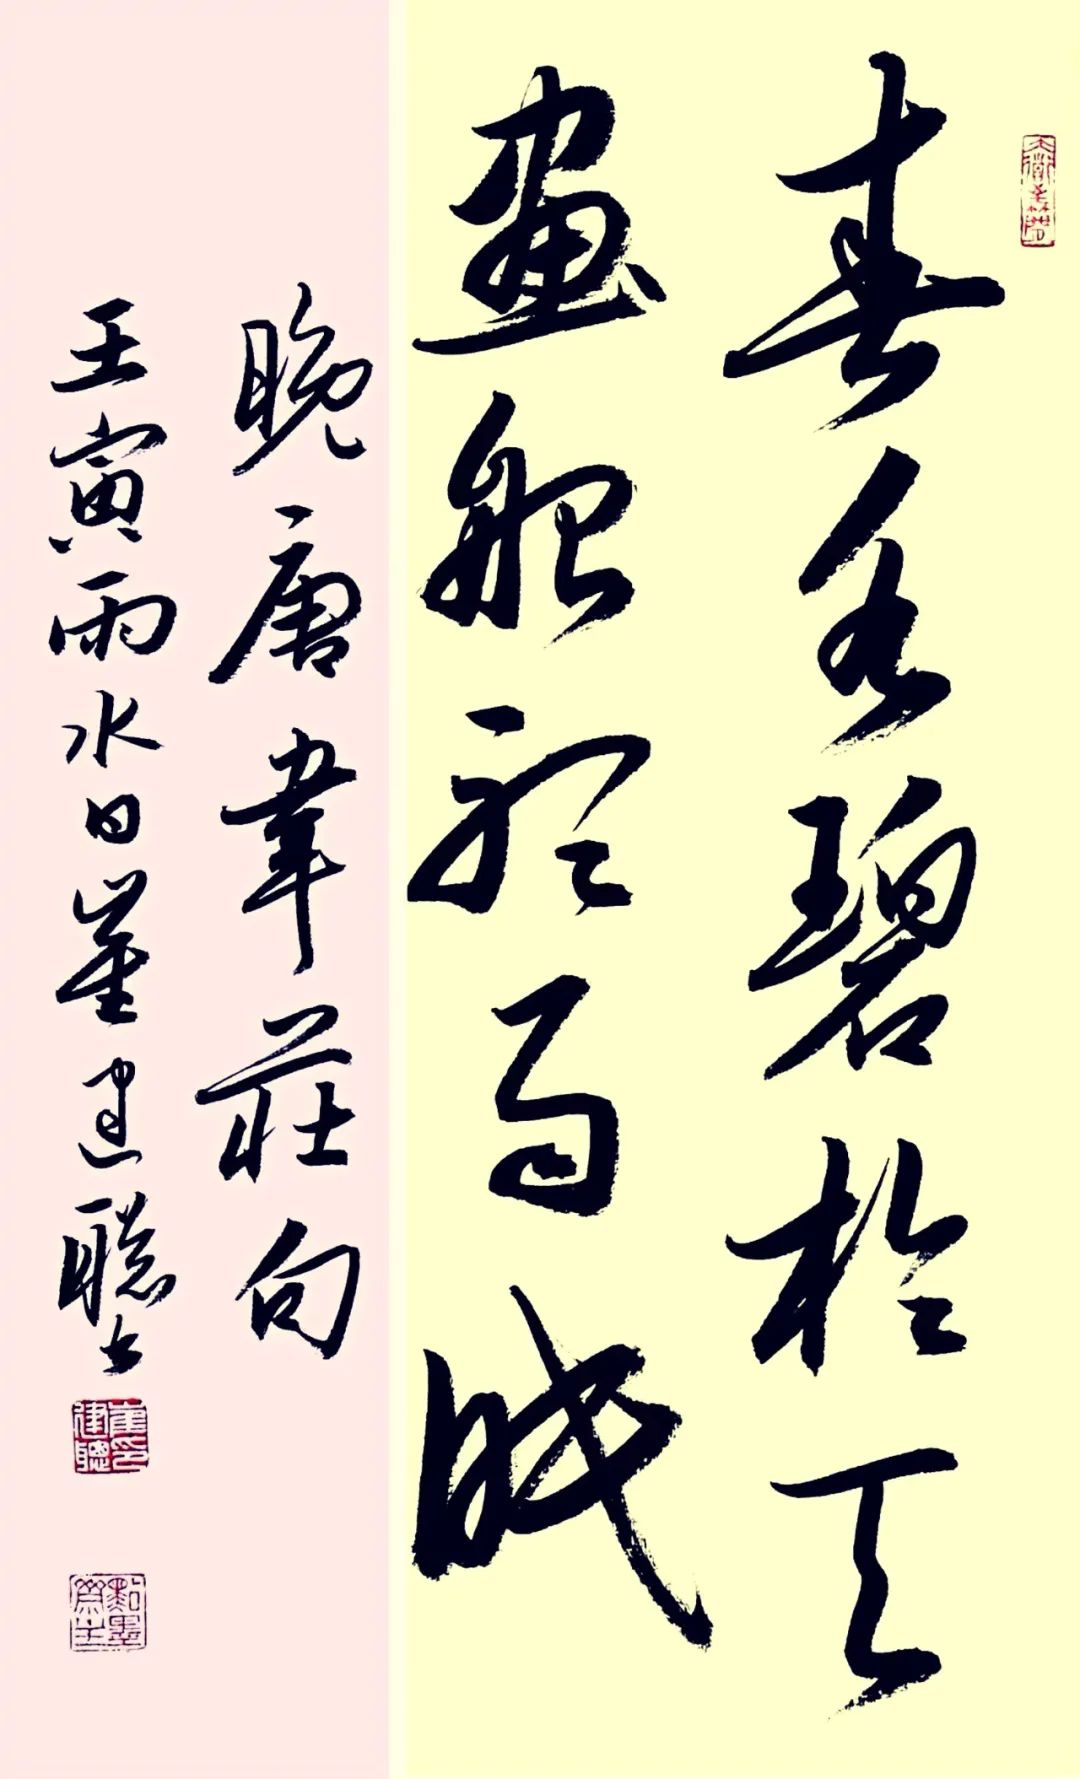 春水碧於天
畫船聽雨眠
晚唐韋莊句
壬寅雨水日崔建聰
崔印建聰